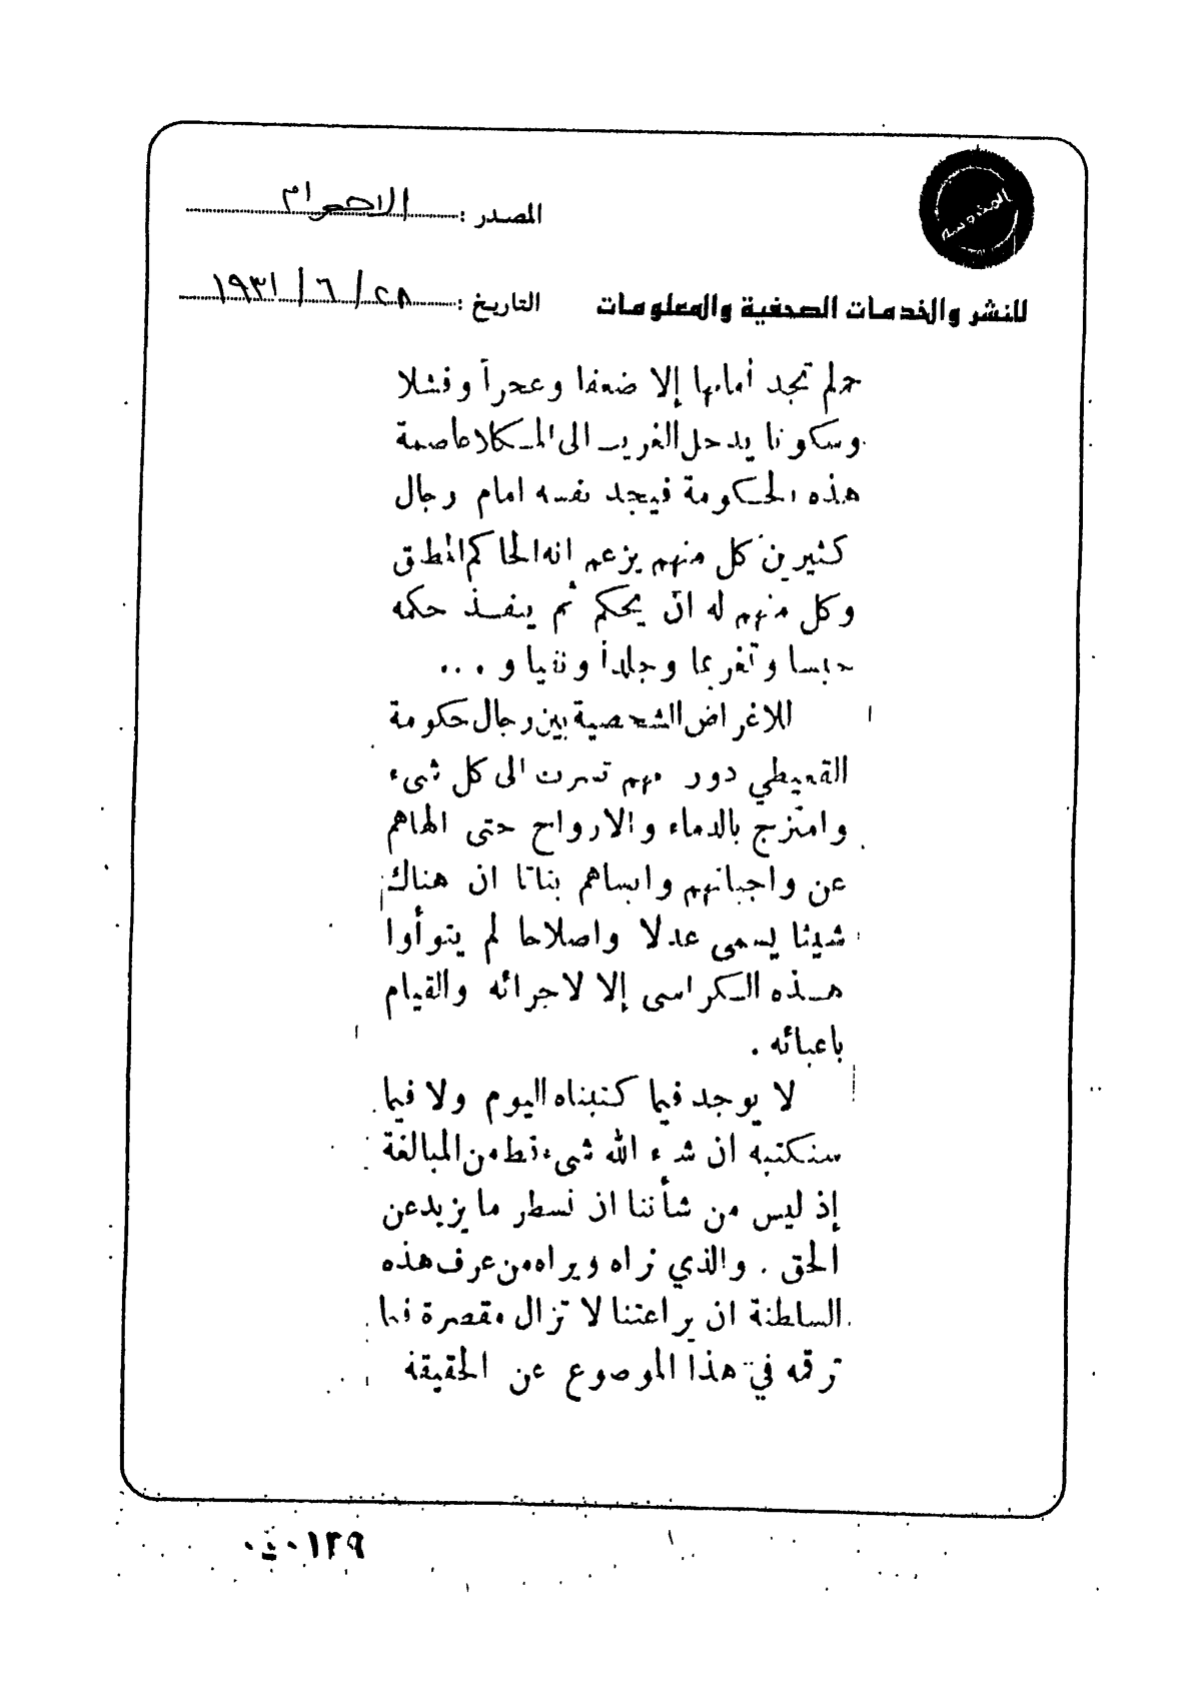 المصدر : الاهرام
التاريخ : ٢٨ / ٦ / ١٩٣١
للنشر والخدمات الصحفية والمعلومات
فلم تجد أمامها إلا ضعفا وعجزاً وفشلا
وسكونا يدخل الغريب الى المكلا عاصمة
هذه الحكومة فيجد نفسه امام رجال
كثيرين كل منهم يزعم انه الحاكم المطلق
وكل منهم له ان يحكم ثم ينفذ حكمه
حبسا وتغريما وجلداً ونفيا و . . .
للاغراض الشخصية بين رجال حكومة
القعيطي دور مهم تسرت الى كل شىء
وامتزج بالدماء والارواح حتى الهاهم
عن واجباتهم وانساهم بتاتا ان هناك
شيئا يسمى عدلا واصلاحا لم يتبوأوا
هذه الكراسى إلا لاجرائه والقيام
باعبائه .
لا يوجد فيما كتبناه اليوم ولا فيما
سنكتبه ان شاء الله شىء قط من المبالغة
إذ ليس من شأننا ان نسطر ما يزيد عن
الحق . والذي نراه ويراه من عرف هذه
السلطنة ان يراعتنا لا تزال مقصرة فيما
ترقمه في هذا الموضوع عن الحقيقة